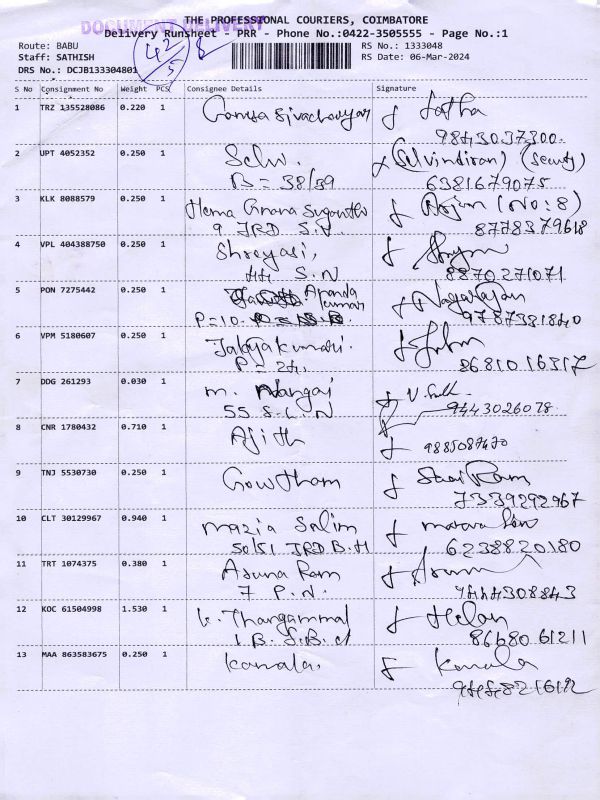 DOCUMENT DELIVERY
THE PROFESSIONAL COURIERS, COIMBATORE
Delivery Runsheet - PRR - Phone No.:0422-3505555 - Page No.:1
Route: BABU
RS No.: 1333048
Staff: SATHISH
RS Date: 06-Mar-2024
DRS No.: DCJB133304801
42
5
S No Consignment No Weight PCS Consignee Details Signature
1 TRZ 135528086 0.220 1 Latha
9843037300
2 UPT 4052352 0.250 1 Selvi. (Selvindiran)
B = 38/39 6381679075
3 KLK 8088579 0.250 1 Hema (No: 8)
9 JRD S.H. 8778379618
4 VPL 404388750 0.250 1 Shreyasi,
44 S.N 8870271071
5 PON 7275442 0.250 1 Ananda Kumar Nagarajan
P=10. 9787381840
6 VPM 5180607 0.250 1 Jayakumari.
P = 24. 8681016317
7 DDG 261293 0.030 1 M. Nangai
55 S.L.N 9443026078
8 CNR 1780432 0.710 1 Ajith 9885087470
9 TNJ 5530730 0.250 1 Gowtham Ram
7339292967
10 CLT 30129967 0.940 1 Mazia Salim
50/51 JRD B.H 6238820180
11 TRT 1074375 0.380 1 Aruna Ram Arun
7 P.N. 9444308843
12 KOC 61504998 1.530 1 K. Thangammal Helan
8668061211
13 MAA 863583675 0.250 1 Kamala. Kamala